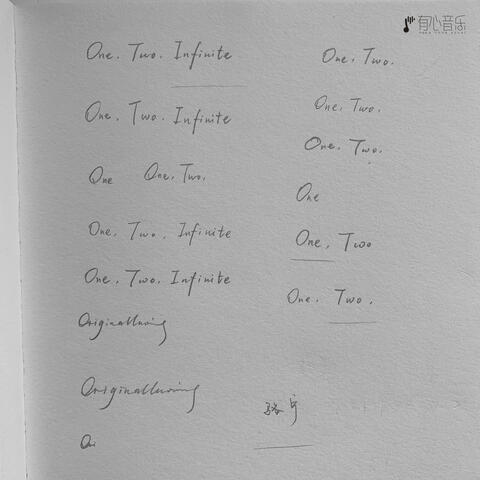 有心音乐
One. Two. Infinite
One. Two. Infinite
One One. Two.
One. Two. Infinite
One. Two. Infinite
Originalluving
Originalluving
Ori
One, Two.
One, Two.
One, Two.
One
One, Two
One. Two.